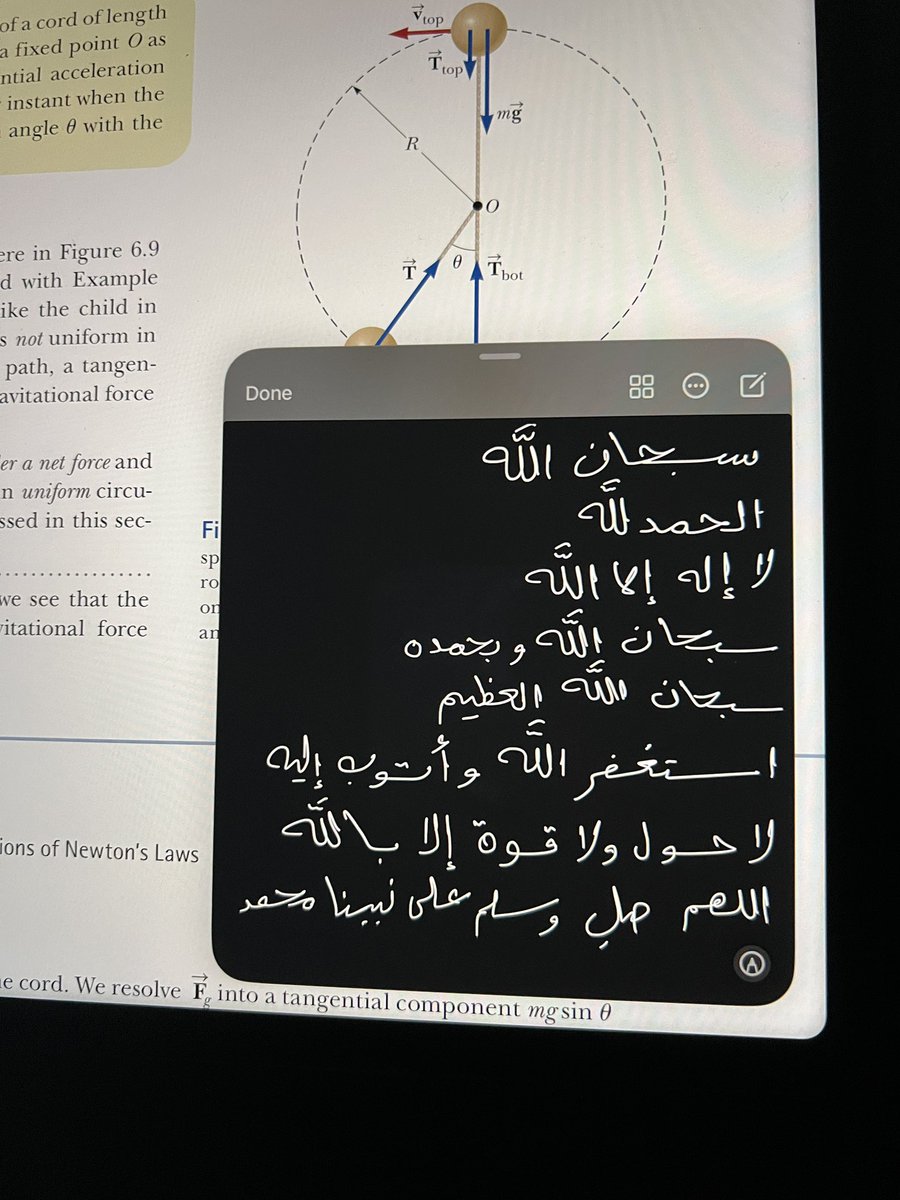 of a cord of length
a fixed point O as
ntial acceleration
instant when the
angle θ with the
v⃗top
T⃗top
mg⃗
R
O
θ
T⃗
T⃗bot
ere in Figure 6.9
d with Example
ike the child in
s not uniform in
path, a tangen-
avitational force
er a net force and
n uniform circu-
ssed in this sec-
we see that the
vitational force
Fi
sp
ro
on
an
Done
سبحان الله
الحمد لله
لا إله إلا الله
سبحان الله وبحمده
سبحان الله العظيم
استغفر الله وأتوب إليه
لا حول ولا قوة إلا بالله
اللهم صلِ وسلم على نبينا محمد
ions of Newton's Laws
e cord. We resolve F⃗g into a tangential component mg sin θ